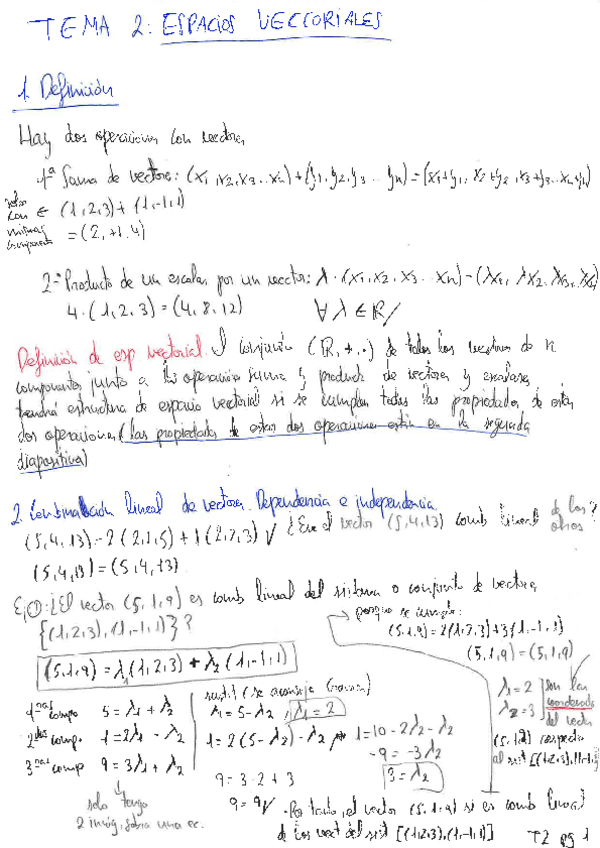 TEMA 2: ESPACIOS VECTORIALES
1. Definición
Hay dos operaciones con vectores
1ª Suma de vectores: (x1, x2, x3 ... xn) + (y1, y2, y3 ... yn) = (x1+y1, x2+y2, x3+y3 ... xn+yn)
solo con mismas componentes
∈ (1,2,3) + (1,-1,1)
= (2,+1,4)
2º Producto de un escalar por un vector: λ · (x1, x2, x3 ... xn) = (λx1, λx2, λx3, λxn)
4 · (1,2,3) = (4,8,12) ∀ λ ∈ ℝ/
Definición de esp vectorial: El conjunto (ℝ, +, ·) de todos los vectores de n
componentes junto a las operaciones suma y producto de vectores y escalares
tendrá estructura de espacio vectorial si se cumplen todas las propiedades de estas
dos operaciones (las propiedades de estas dos operaciones están en la segunda
diapositiva)
2. Combinación lineal de vectores. Dependencia e independencia
(5,4,13) = 2(2,1,5) + 1(1,2,3) √ ¿Es el vector (5,4,13) comb lineal de los otros?
(5,4,13) = (5,4,13)
Ej①: ¿El vector (5,1,9) es comb lineal del sistema o conjunto de vectores
{(1,2,3),(1,-1,1)}?
porque se cumple:
(5,1,9) = 2(1,2,3)+3(1,-1,1)
(5,1,9) = (5,1,9)
(5,1,9) = λ1(1,2,3) + λ2(1,-1,1)
λ1 = 2
λ2 = 3
son las coordenadas del vector
(5,1,9) respecto
al sist [(1,2,3),(1,-1,1)]
1ªs comp 5 = λ1 + λ2
2ªs comp. 1 = 2λ1 - λ2
3ªs comp 9 = 3λ1 + λ2
solo tengo
2 incóg, sobra una ec.
sustit (se aconseja
λ1 = 5 - λ2, λ1 = 2
1 = 2(5-λ2) - λ2 → 1 = 10 - 2λ2 - λ2
-9 = -3λ2
3 = λ2
9 = 3·2 + 3
9 = 9√
- Por tanto, el vector (5,1,9) si es comb lineal
de los vect del sist [(1,2,3),(1,-1,1)]
T2 pg 1